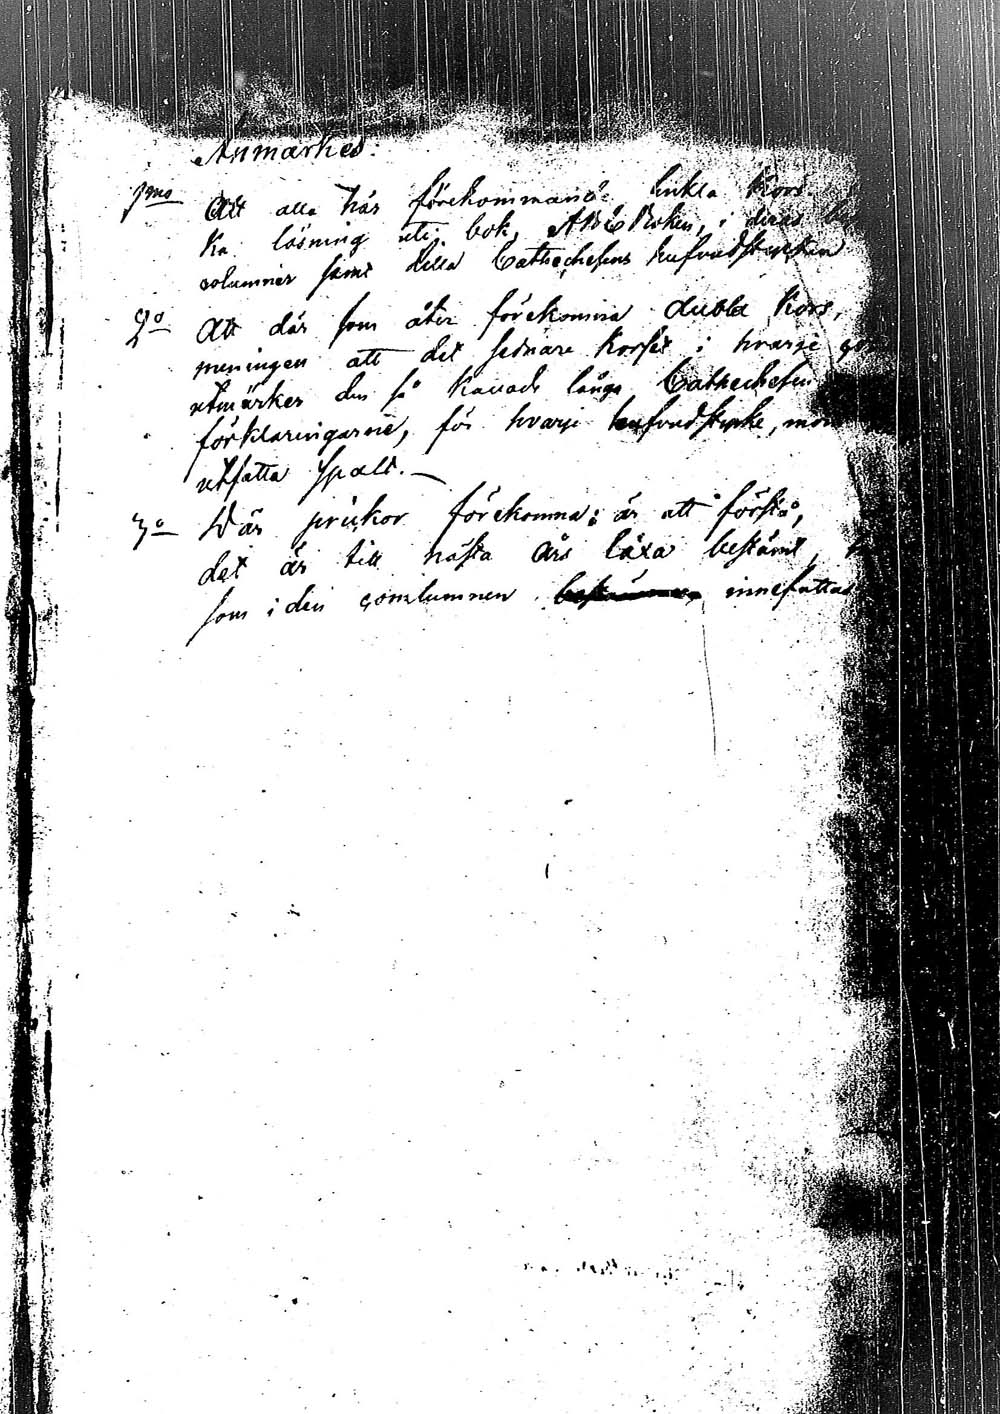 Anmärkes:
1mo Att alla här förekommande enkla Kors
ka läsning uti bok, ABC Boken, i deras
columner samt lilla Cathechesens hufvudstycken
2o Att där som åter förekomma dubla Kors,
meningen att det sednare Korset i hvarje
utmärker den så kallade långa Cathechesen
förklaringarne, för hvarje hufvudstycke,
utsatta Spalt.
3o Där prickor förekomma; är att förstå,
det är till nästa års läxa bestämt,
som i den comlumnen innefattas